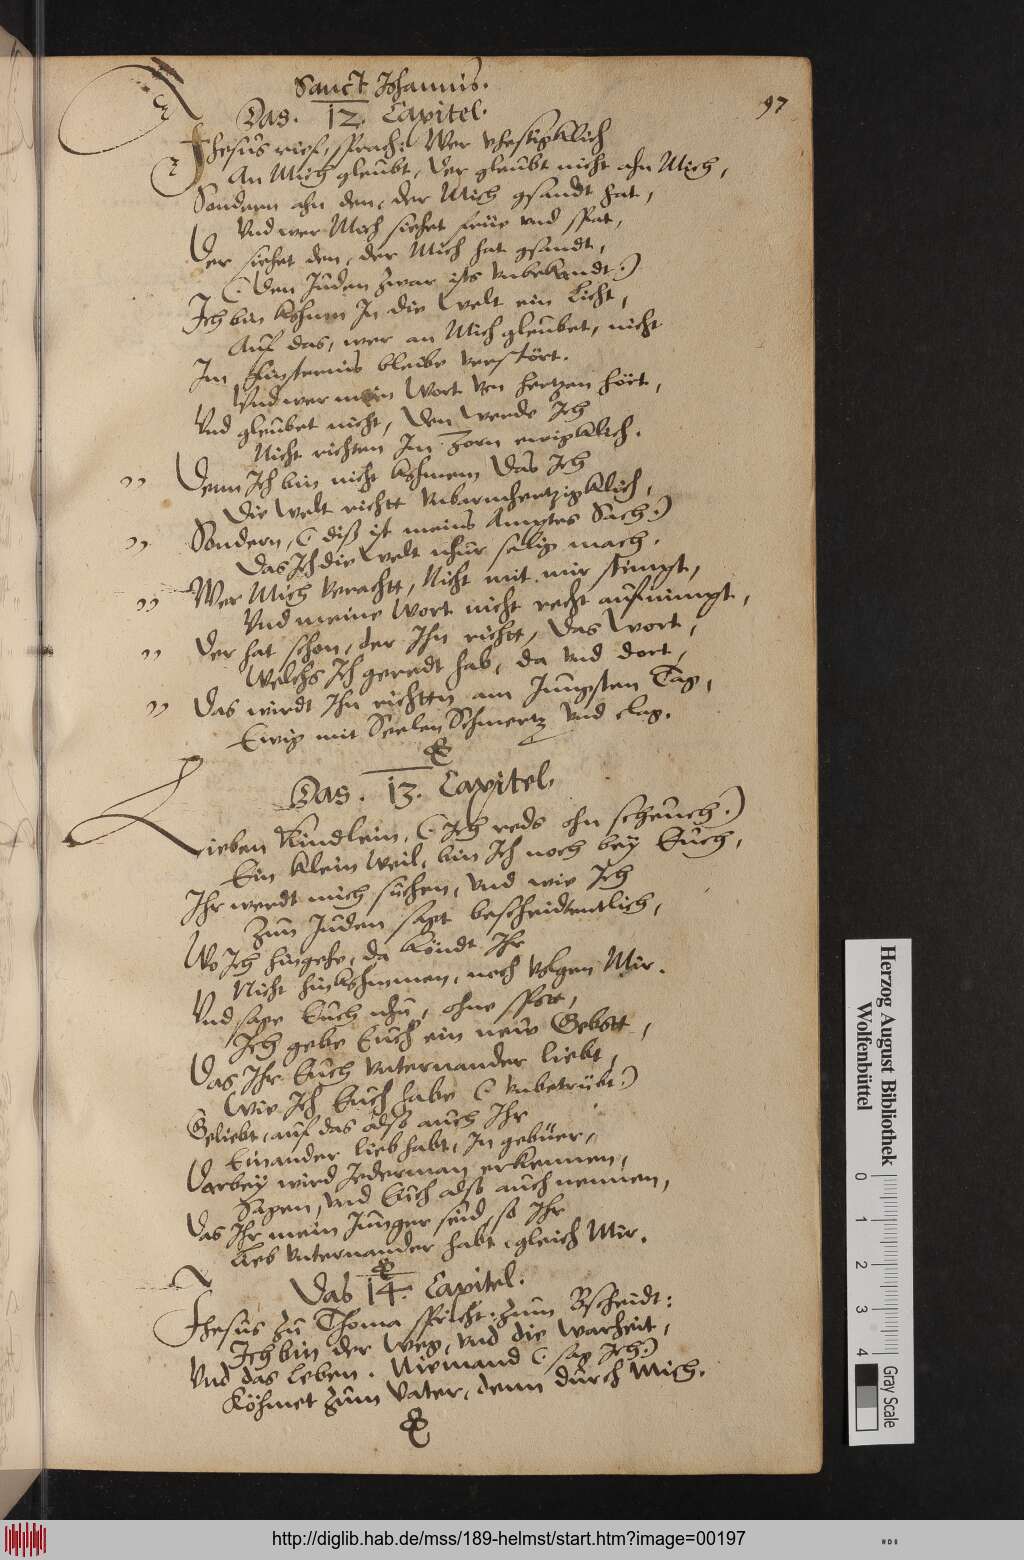 Sanct Johannis.
97
Das. 12. Capitel.
Jhesus rief, sprach: Wer
An Mich gleubt, der gleubt nicht ahn Mich,
Sondern ahn den, der Mich gsandt hat,
Vnd wer Mich siehet früe vnd spat,
Der siehet den, der Mich hat gsandt,
(: den Juden zwar ists vnbekandt:)
Ich bin kohmm In die Welt ein Licht,
Auf das, wer an Mich gleubet, nicht
Im Finsternis bleibe verstört.
Vnd wer mein Wort von hertzen hört,
Vnd gleubet nicht, den werde Ich
Nicht richten Im Zorn ewigklich.
Denn Ich bin nicht kohmem das Ich
Die Welt richte vnbarmhertzigklich,
Sondern, (: diß ist meins Amptes Sach:)
Das Ich die Welt nhur selig mach.
Wer Mich veracht, Nicht mit mir stimpt,
Vnd meine Wort nicht recht aufnimpt,
Der hat schon, der Ihn richtt, das Wort,
Welchs Ich geredt hab, da vnd dort,
Das wirdt Ihn richtten am Jungsten Tag,
Ewig mit Seelen Schmertz vnd clag.
Das. 13. Capitel.
Lieben Kindlein, (: Ich reds ohn scheuch:)
Ein klein Weil, bin Ich noch bey Euch,
Ihr werdt mich suchen, vnd wie Ich
Zun Juden sagt bescheidentlich,
Wo Ich hingehe, da köndt Ihr
Nicht hinkohmmen, noch volgen Mir.
Vnd sage Euch nhu, ohne spott,
Ich gebe Euch ein new Gebott,
Das Ihr Euch vnternander liebt,
Wie Ich Euch habe (: vnbetrübt:)
Geliebt, auf das also auch Ihr
Einander lieb habt, In gebüer,
Darbey wird Jederman erkennen,
Sagen, vnd Euch also auch nennen,
Das Ihr mein Junger seid, so Ihr
Lieb vnternander habt, gleich Mir.
Das 14. Capitel.
Jhesus zu Thoma spricht: zum Bscheidt:
Ich bin der Weg, vnd die Warheit,
Vnd das Leben. Niemand (: sag Ich:)
Köhmet zum Vater, denn durch Mich.
Herzog August Bibliothek
Wolfenbüttel
0 1 2 3 4
Gray Scale
http://diglib.hab.de/mss/189-helmst/start.htm?image=00197